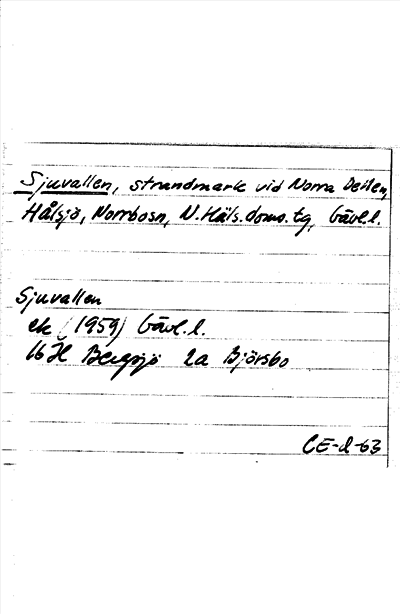 Sjuvallen, strandmark vid Norra Dellen,
Hålsjö, Norrbosn, N.Häls.doms.tg, Gävl.l.
Sjuvallen
ek (1959) Gävl.l.
16H Bergsjö 2a Björsbo
CE-d-63